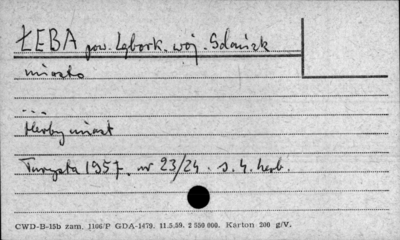 ŁEBA pow. Lębork. woj. Gdańsk
miasto
...
Herby miast
Turysta 1957. nr 23/24 s. 4. herb.
CWD-B-15b zam. 1106/P GDA-1479. 11.5.59. 2 550 000. Karton 200 g/V.